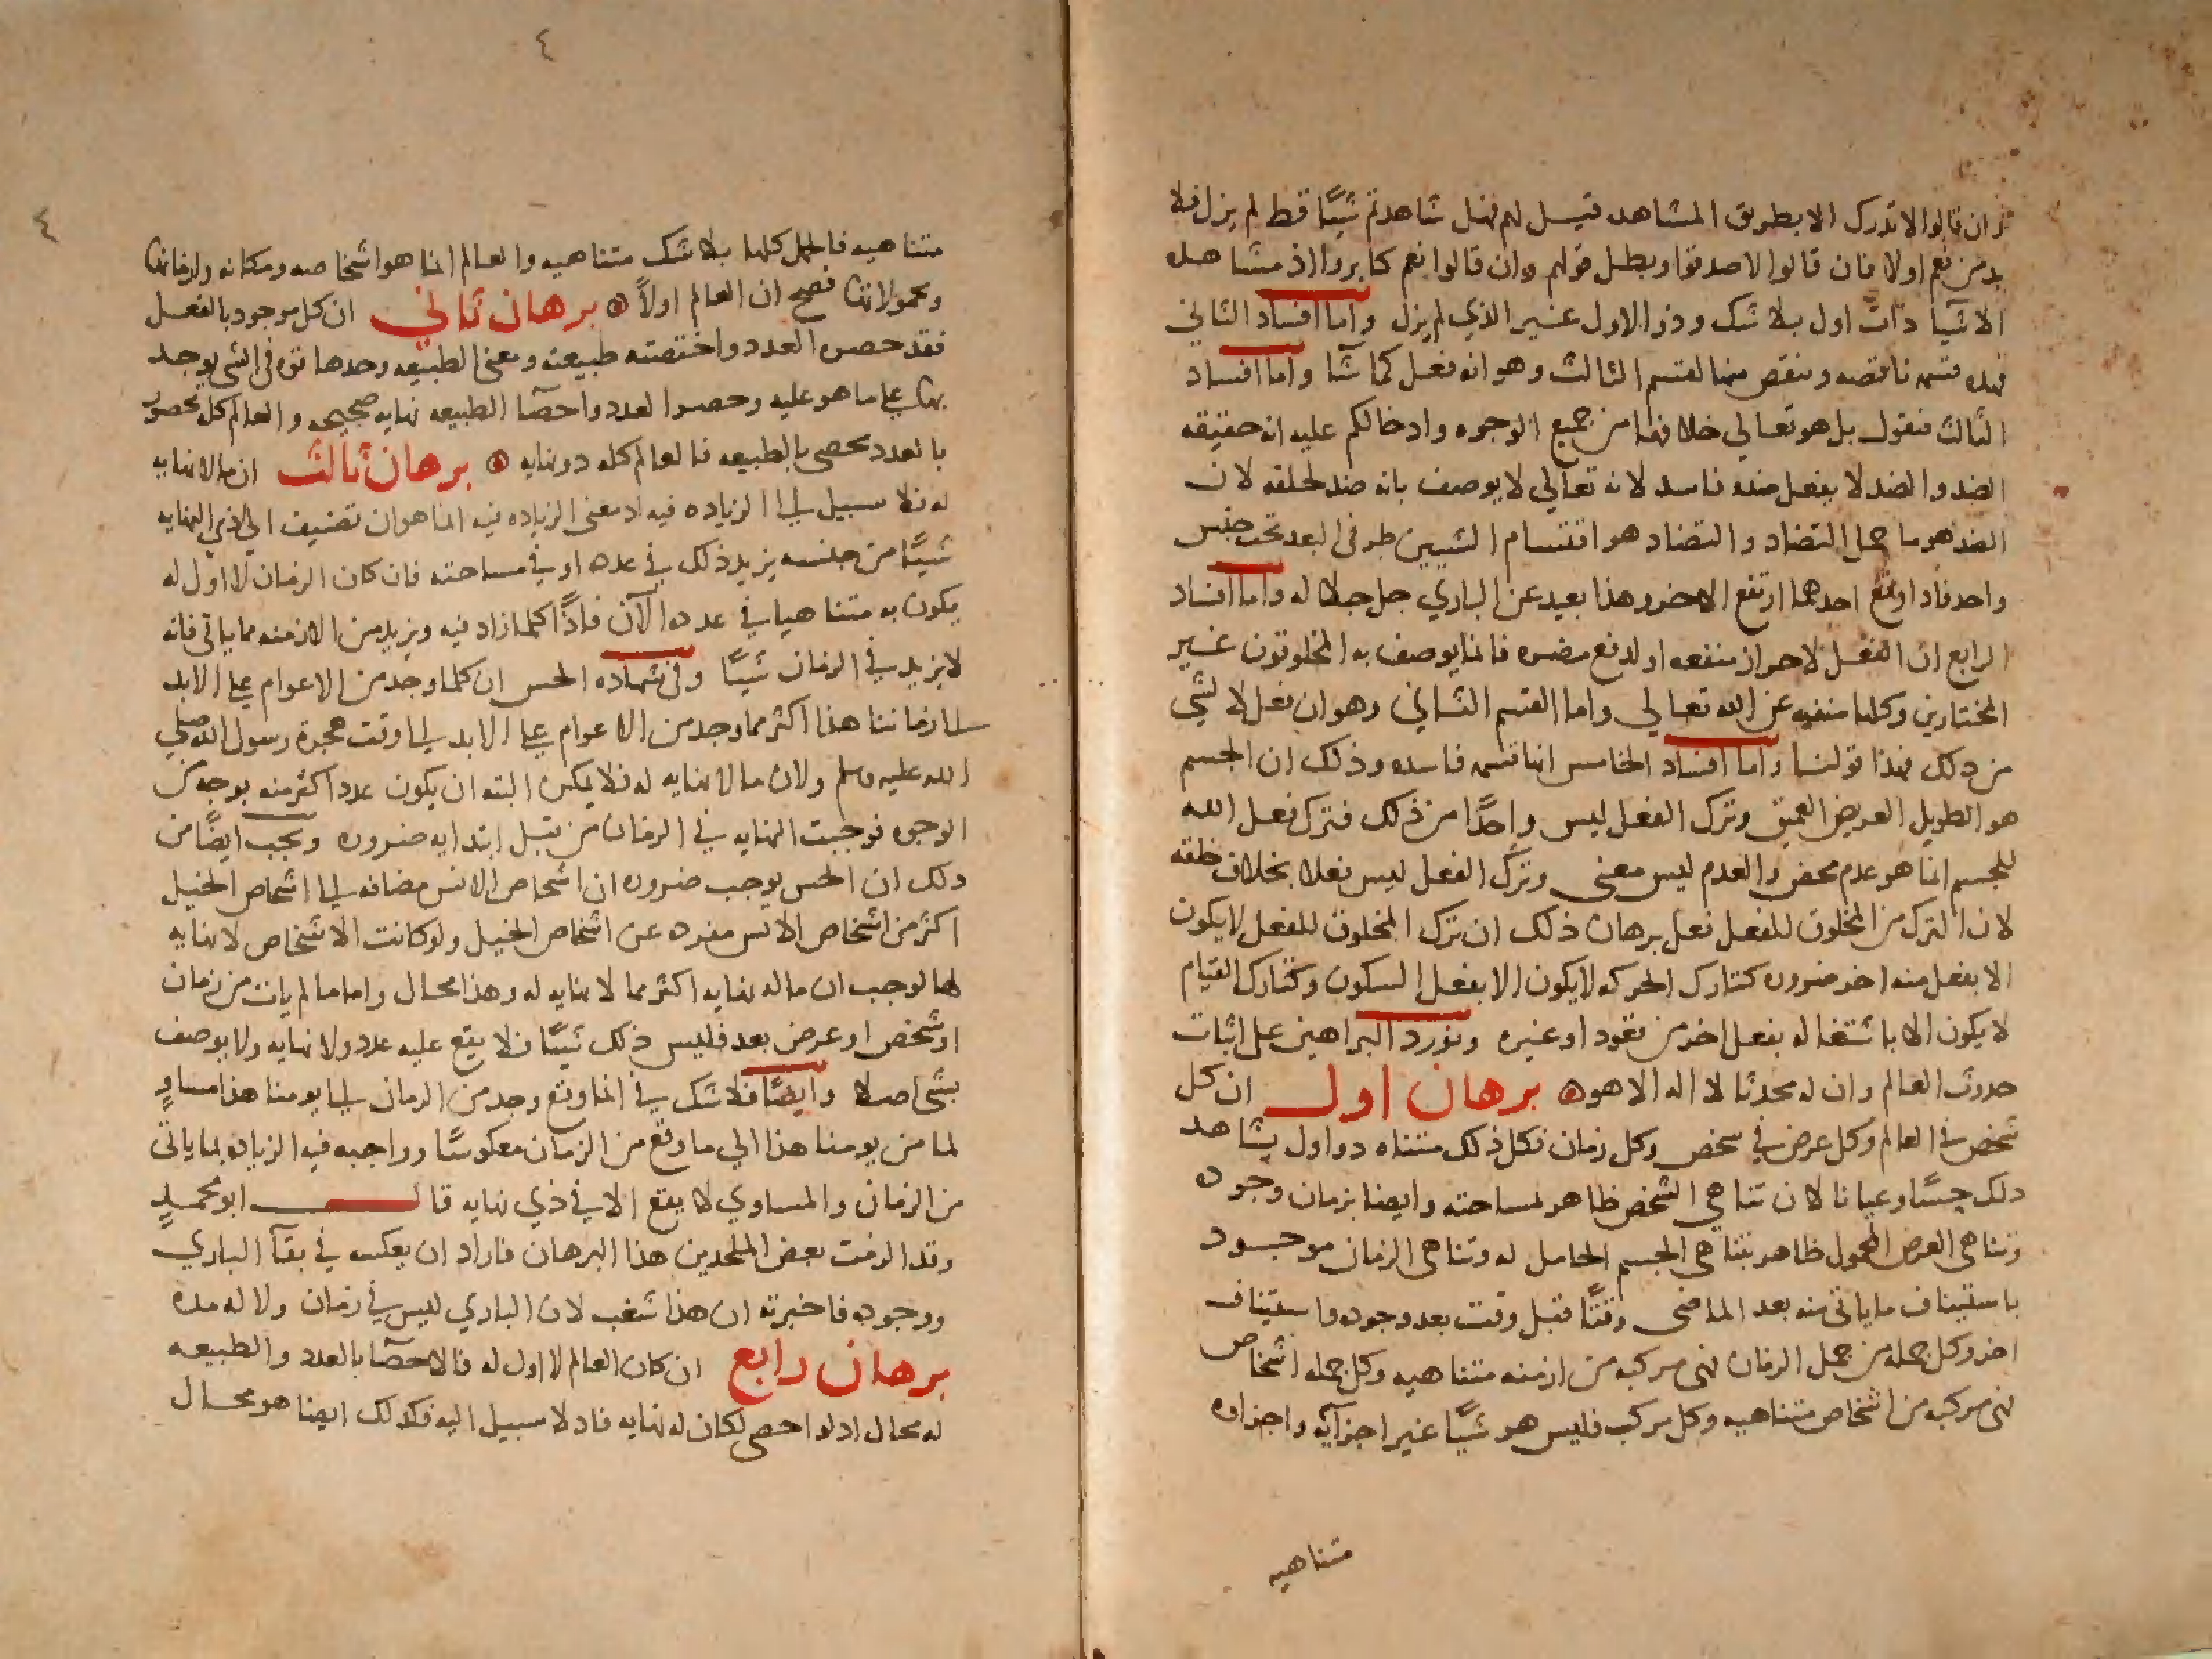 وان قالوا لا تدرك الا بطريق المشاهده قيل لهم فهل شاهدتم شيًا قط لم يزل فلا
بد من نعم اولا فان قالوا لا صدقوا وبطل قولهم وان قالوا نعم كابروا اذ مشاهده
الاشيا ذات اول بلا شك وذو الاول غير الذي لم يزل واما افساد الثاني
فهذه قسمه ناقصه وينقص منها القسم الثالث وهو انه فعل كما شآ واما افساد
الثالث فنقول بل هو تعالي خلافها من جميع الوجوه وادخالكم عليه انه حقيقه
الضد والضد لا يفعل ضده فاسد لانه تعالي لا يوصف بانه ضد لخلقه لان
الضد هو ما حمل التضاد والتضاد هو اقتسام الشيين طرفي البعد تحت جنس
واحد فاذا وقع احدهما ارتفع الاخر وهذا بعيد عن الباري جل جلاله واما افساد
الرابع ان الفعل لاحراز منفعه او لدفع مضره فانما يوصف به المخلوقون غير
المختارين وكلها منفيه عن الله تعالي واما القسم الثاني وهو ان فعل لا لشي
من ذلك فهذا قولنا واما افساد الخامس انها قسمه فاسده وذلك ان الجسم
هو الطويل العريض العميق وترك الفعل ليس واحدًا من ذلك فترك فعل الله
للجسم انما هو عدم محض والعدم ليس معني وترك الفعل ليس فعلا بخلاف خلقه
لان الترك من المخلوق للفعل فعل برهان ذلك ان ترك المخلوق للفعل لا يكون
الا بفعل منه اخر ضروره كتارك الحركه لا يكون الا بفعل السكون وكتارك القيام
لا يكون الا باشتغاله بفعل اخر من قعود او غيره ونورد البراهين على اثبات
حدوث العالم وان له محدثا لا اله الا هو ه برهان اول ان كل
شخص في العالم وكل عرض في شخص وكل زمان فكل ذلك متناه ذو اول يشاهد
ذلك حِسًّا وعيانا لان تناهي الشخص ظاهر لمساحته وايضا بزمان وجوده
وتناهي العرض المحمول ظاهر بتناهي الجسم الحامل له وتناهي الزمان موجود
باستيناف ما ياتي منه بعد الماضي وقتًا قبل وقت بعد وجوده واستيناف
اخر وكل جمله من جمل الزمان فهي مركبه من ازمنه متناهيه وكل جمله اشخاص
فهي مركبه من اشخاص متناهيه وكل مركب فليس هو شيًا غير اجزآيه واجزاوه
متناهيه
٤
٤
متناهيه فالجمل كلها بلا شك متناهيه والعالم انما هو اشخاصه ومكانه وازمانها
ومحمولاتها فصح ان العالم اولاً ه برهان ثاني ان كل موجود بالفعل
فقد حصره العدد واختصته طبيعته ومعني الطبيعه وحدها قوه في الشي يوجد
بها علي ما هو عليه وحصر العدد واحصآ الطبيعه نهايه صحيحه والعالم كل محصور
بالعدد محصي بالطبيعه فالعالم كله ذو نهايه ه برهان ثالث ان ما لا نهايه
له فلا سبيل الي الزياده فيه اذ معني الزياده فيه انما هو ان تضيف الي ذي النهايه
شيًا من جنسه يزيد ذلك في عدده او في مساحته فان كان الزمان لا اول له
يكون به متناهيا في عدده الآن فاذًا كلما زاد فيه ويزيد من الازمنه مما ياتي فانه
لا يزيد في الزمان شيًا وفي شهاده الحس ان كلما وجد من الاعوام علي الابد
الي زماننا هذا اكثر مما وجد من الاعوام علي الابد الي وقت هجرة رسول الله صلي
الله عليه وسلم ولان ما لا نهايه له فلا يمكن البته ان يكون عدد اكثر منه بوجه من
الوجوه فوجبت النهايه في الزمان من قبل ابتدايه ضروره ويجب ايضًا من
ذلك ان الحس يوجب ضروره ان اشخاص الانس مضافه الي اشخاص الخيل
اكثر من اشخاص الانس مفرده عن اشخاص الخيل ولو كانت الاشخاص لا نهايه
لها لوجب ان ما له نهايه اكثر مما لا نهايه له وهذا محال واما ما لم يات من زمان
او شخص او عرض بعد فليس ذلك شيًا فلا يقع عليه عدد ولا نهايه ولا يوصف
بشي اصلا وايضًا فلا شك في انما وقع وجد من الزمان الي يومنا هذا مساوٍ
لما من يومنا هذا الي ما وقع من الزمان معكوسًا وواجبه فيه الزياده بما ياتي
من الزمان والمساوي لا يقع الا في ذي نهايه قال ابو محمد
وقد الزمت بعض الملحدين هذا البرهان فاراد ان يعكسه في بقآ الباري
ووجوده فاخبرته ان هذا شغب لان الباري ليس في زمان ولا له مده
برهان رابع ان كان العالم لا اول له فالاحصآ بالعدد والطبيعه
له محال اذ لو احصي لكان له نهايه فاذ لا سبيل اليه فكذلك ايضا هو محال